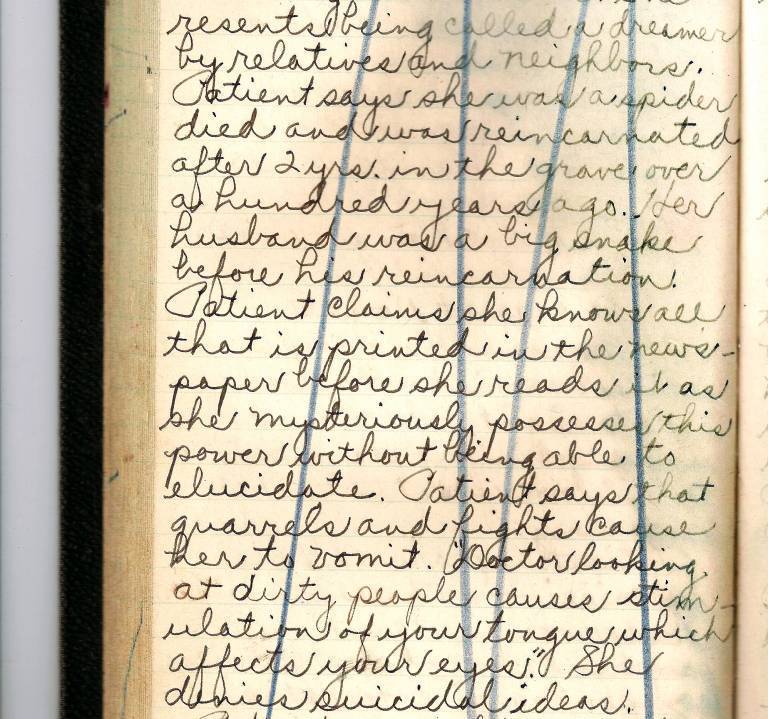 resents being called a dreamer
by relatives and neighbors.
Patient says she was a spider
died and was reincarnated
after 2 yrs. in the grave over
a hundred years ago. Her
husband was a big snake
before his reincarnation.
Patient claims she knows all
that is printed in the news-
paper before she reads it as
she mysteriously possesses this
power without being able to
elucidate. Patient says that
quarrels and fights cause
her to vomit. "Doctor looking
at dirty people causes stim-
ulation of your tongue which
affects your eyes." She
denies suicidal ideas.